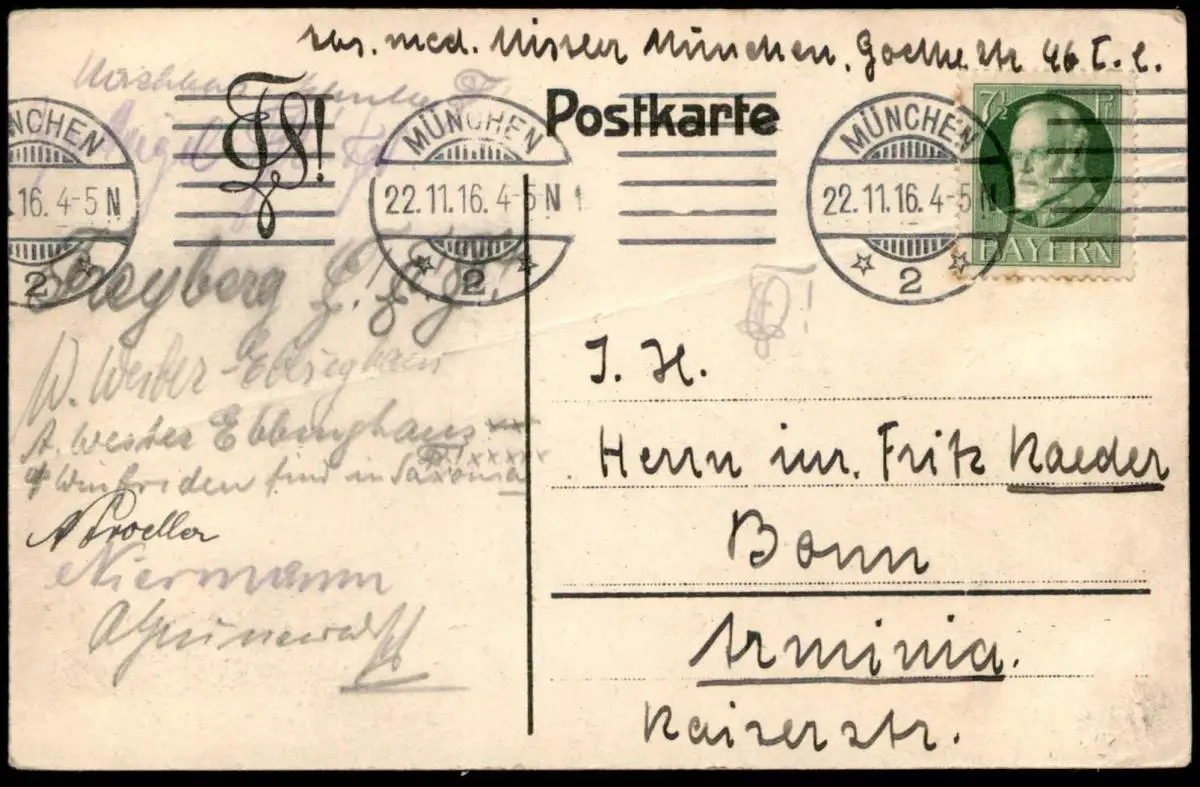 med. München, Goethestr 46 I. l.
Postkarte
MÜNCHEN
.16. 4-5 N
2
MÜNCHEN
22.11.16. 4-5 N
2
MÜNCHEN
22.11.16. 4-5 N
2
7½ Pf
BAYERN
Freyberg
W. Weber-Ebbinghaus
A. Wester Ebbinghaus xxx
sind in Saxonia
Niermann
J. H.
Herrn iur. Fritz Kaeder
Bonn
Arminia.
Kaiserstr.